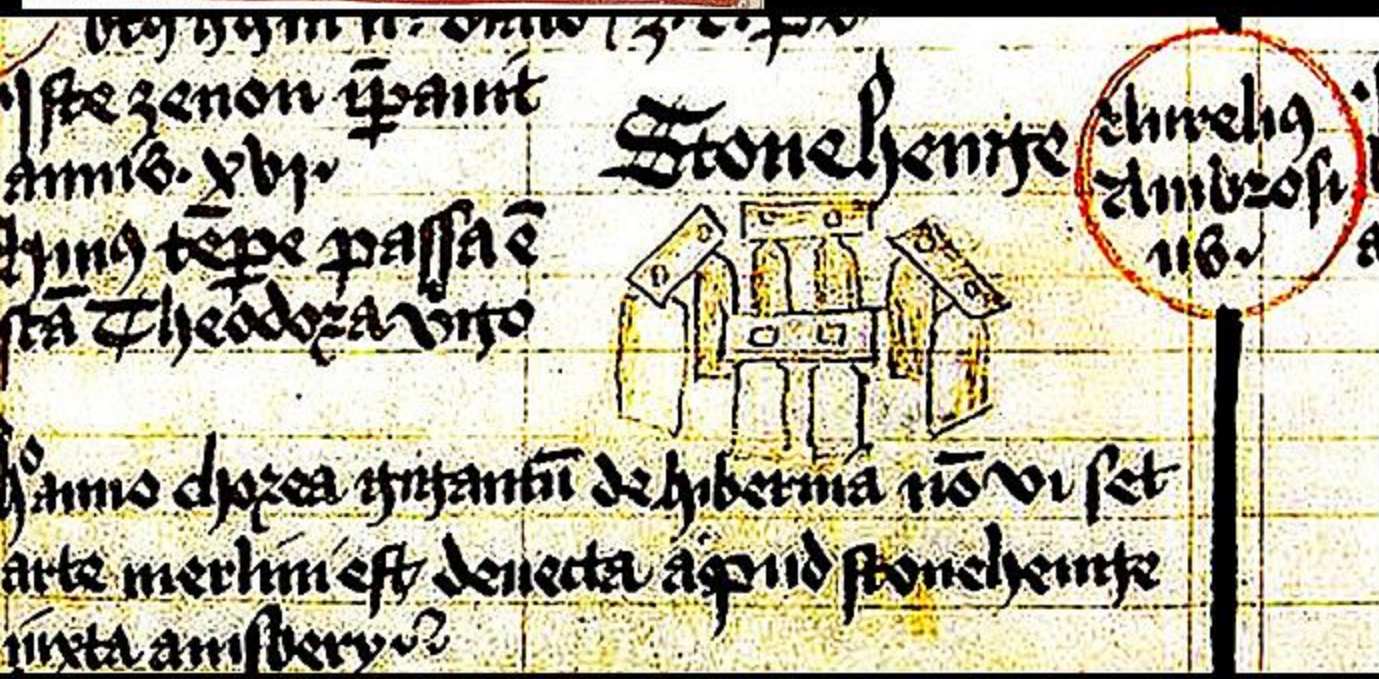 Iste zenon īpauit
annis. xvj.
tēpe passa ē
stā Theodora v̉go
Stonehenge
Aurelius
Ambrosi
us.
hº anno chorea gigantū de hibernia nō vi set
arte merlini est deuecta apud stonehenge
iuxta amisbery